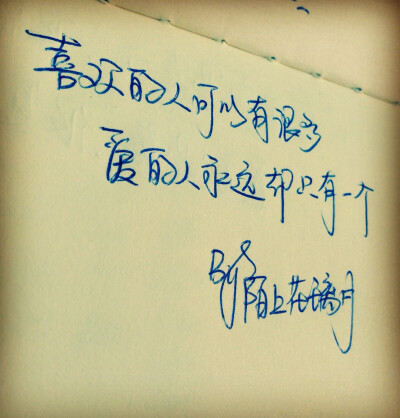 喜欢的人可以有很多
爱的人永远却只有一个
By 陌上花璃月